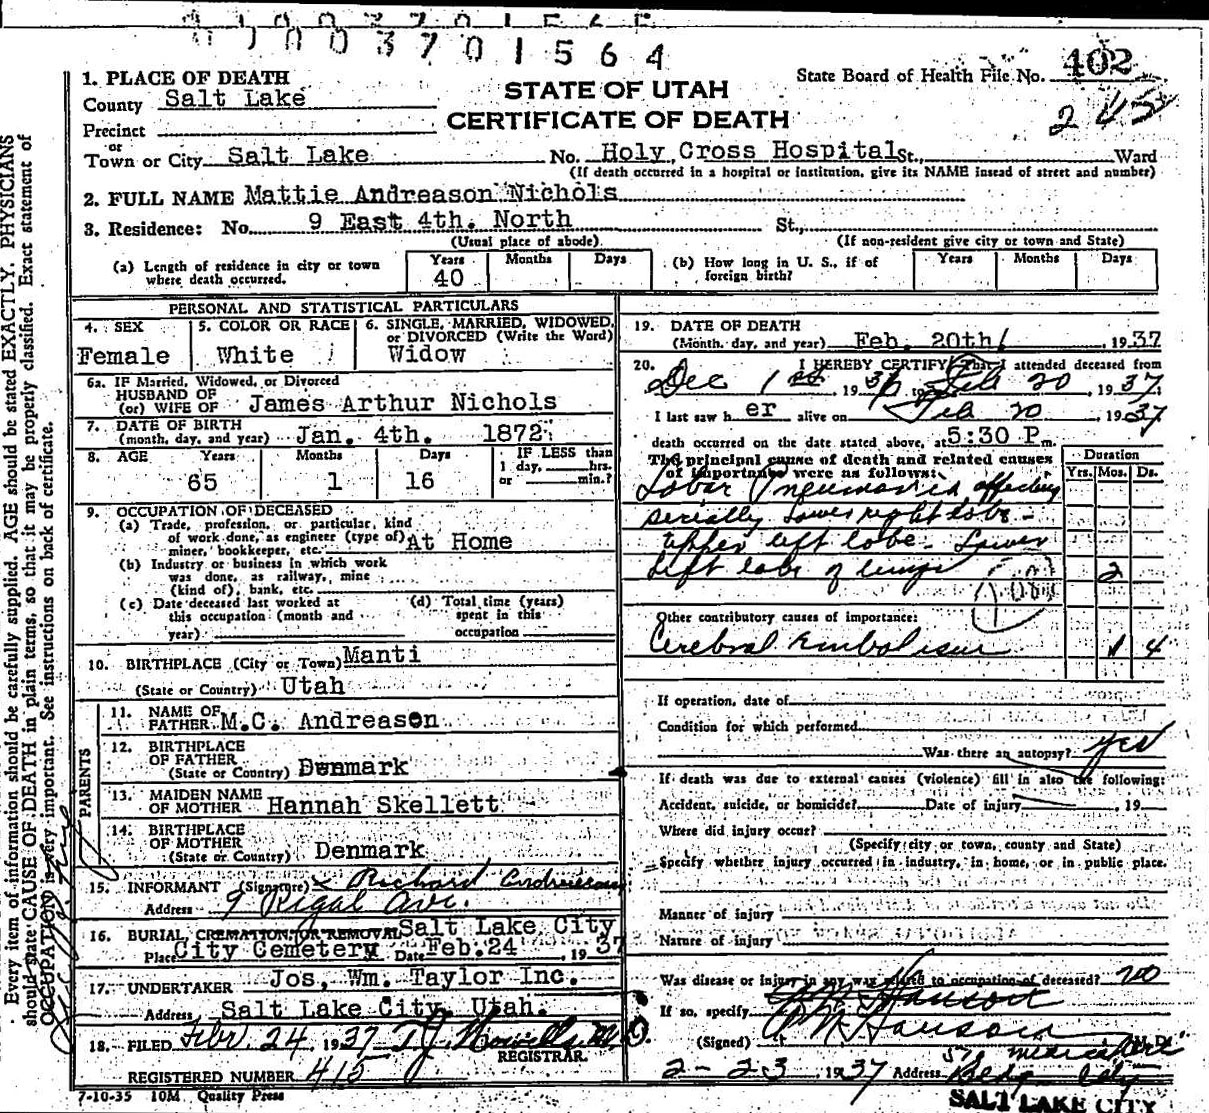 3701564
1. PLACE OF DEATH
County Salt Lake
Precinct
or
Town or City Salt Lake
STATE OF UTAH
CERTIFICATE OF DEATH
State Board of Health File No. 402
245
No. Holy Cross Hospital St., Ward
(If death occurred in a hospital or institution, give its NAME insead of street and number)
2. FULL NAME Mattie Andreason Nichols
3. Residence: No. 9 East 4th. North St.,
(Usual place of abode) (If non-resident give city or town and State)
(a) Length of residence in city or town where death occurred. Years 40 Months Days
(b) How long in U. S., if of foreign birth? Years Months Days
PERSONAL AND STATISTICAL PARTICULARS
4. SEX Female
5. COLOR OR RACE White
6. SINGLE, MARRIED, WIDOWED, or DIVORCED (Write the Word) Widow
6a. IF Married, Widowed, or Divorced
HUSBAND OF
(or) WIFE OF James Arthur Nichols
7. DATE OF BIRTH
(month, day, and year) Jan. 4th. 1872
8. AGE Years 65 Months 1 Days 16 IF LESS than 1 day, hrs. or min.?
9. OCCUPATION OF DECEASED
(a) Trade, profession, or particular, kind
of work done, as engineer (type of) At Home
miner, bookkeeper, etc.
(b) Industry or business in which work
was done, as railway, mine
(kind of), bank, etc.
(c) Date deceased last worked at
this occupation (month and
year)
(d) Total time (years)
spent in this
occupation
10. BIRTHPLACE (City or Town) Manti
(State or Country) Utah
PARENTS
11. NAME OF
FATHER M.C. Andreasen
12. BIRTHPLACE
OF FATHER
(State or Country) Denmark
13. MAIDEN NAME
OF MOTHER Hannah Skellett
14. BIRTHPLACE
OF MOTHER
(State or Country) Denmark
15. INFORMANT (Signature) x Richard Andreason
Address 9 Rigal Ave.
16. BURIAL, CREMATION, OR REMOVAL Salt Lake City
Place City Cemetery Date Feb. 24, 1937
17. UNDERTAKER Jos, Wm. Taylor Inc.
Address Salt Lake City, Utah.
18. FILED Febr. 24, 1937 T.J. Howells M.D.
REGISTRAR.
REGISTERED NUMBER 415
7-10-35 10M Quality Press
19. DATE OF DEATH
(Month, day, and year) Feb. 20th, 1937
20. I HEREBY CERTIFY, That I attended deceased from
Dec 1st, 1936 to Feb 20, 1937
I last saw her alive on Feb 20, 1937
death occurred on the date stated above, at 5:30 P m.
The principal cause of death and related causes
of importance were as follows:
Duration
Yrs. Mos. Ds.
Lobar Pneumonia affecting
serially Lower right lobe -
upper left lobe - Lower
Left lobe of lungs 2
108
Other contributory causes of importance:
Cerebral Embolism 1 4
If operation, date of
Condition for which performed
Was there an autopsy? yes
If death was due to external causes (violence) fill in also the following:
Accident, suicide, or homicide? Date of injury, 19
Where did injury occur?
(Specify city or town, county and State)
Specify whether injury occurred in industry, in home, or in public place.
Manner of injury
Nature of injury
Was disease or injury in any way related to occupation of deceased? no
If so, specify
(Signed) M. D.
2-23, 1937 Address Medical Arts
Bldg City
SALT LAKE CITY
Every item of information should be carefully supplied. AGE should be stated EXACTLY. PHYSICIANS
should state CAUSE OF DEATH in plain terms, so that it may be properly classified. Exact statement of
OCCUPATION is very important. See instructions on back of certificate.